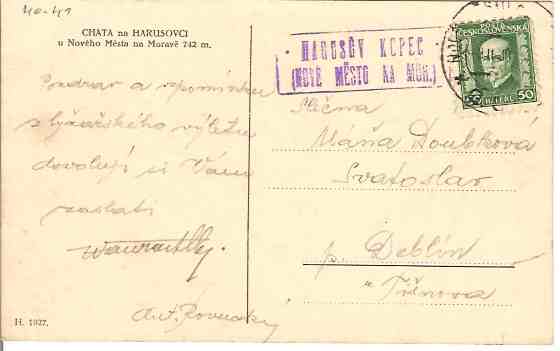 40-41
CHATA na HARUSOVCI
u Nového Města na Moravě 742 m.
HARUSŮV KOPEC
(NOVÉ MĚSTO NA MOR.)
ČESKOSLOVENSKO
50 HALÉŘŮ 50
Pozdrav a vzpomínku
z lyžařského výletu
dovoluji si Vám
zaslati
Ant.
Slečna
Máňa Doubková
Svatoslav
p. Deblín
u Tišnova
H. 1927.